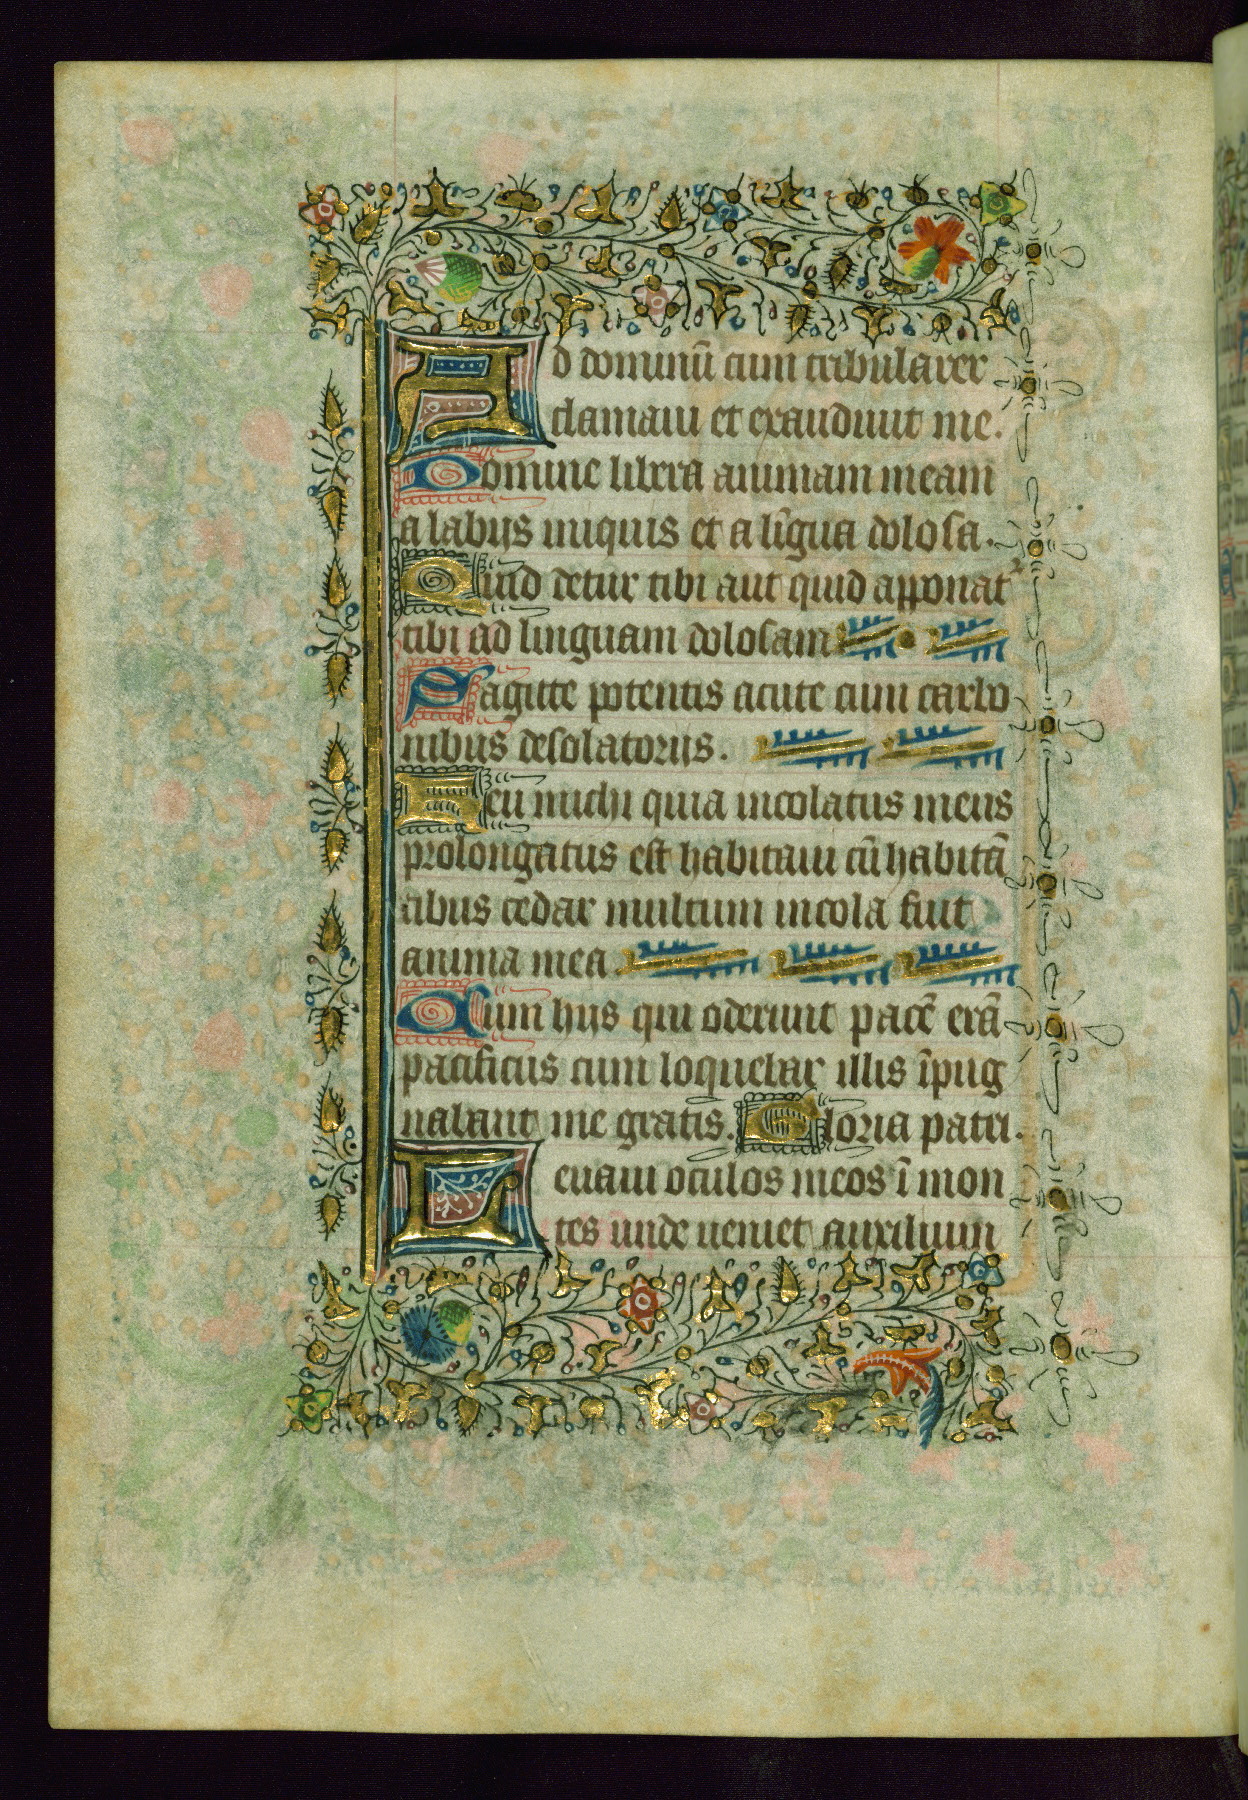 Ad dominū cum tribularer
clamaui et exaudiuit me.
Domine libera animam meam
a labijs iniquis et a līgua dolosa.
Quid detur tibi aut quid apponat᷑
tibi ad linguam dolosam
Sagitte potentis acute cum carbo
nibus desolatorijs.
Heu michi quia incolatus meus
prolongatus est habitaui cū habitā
tibus cedar multum incola fuit
anima mea.
Cum hijs qui oderunt pacē erā
pacificus cum loquebar illis īpug
nabant me gratis. Gloria patri.
Leuaui oculos meos ī mon
tes unde ueniet auxilium